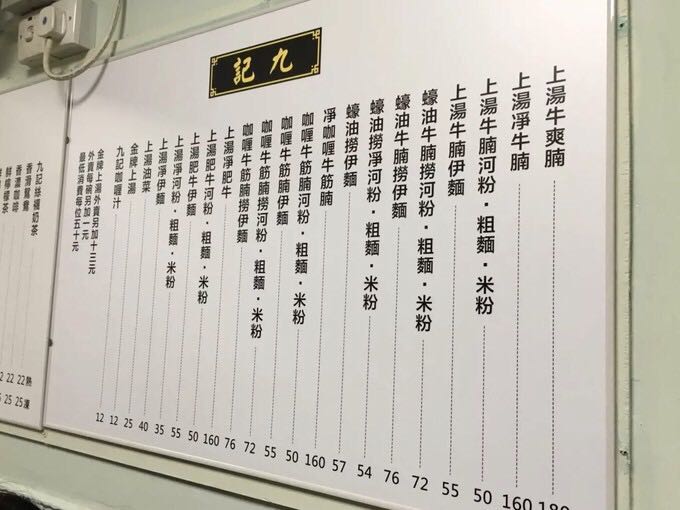 九記
上湯牛爽腩 180
上湯凈牛腩 160
上湯牛腩河粉．粗麵．米粉 50
上湯牛腩伊麵 55
蠔油牛腩撈河粉．粗麵．米粉 72
蠔油牛腩撈伊麵 76
蠔油撈凈河粉．粗麵．米粉 54
蠔油撈伊麵 57
凈咖喱牛筋腩 160
咖喱牛筋腩河粉．粗麵．米粉 50
咖喱牛筋腩伊麵 55
咖喱牛筋腩撈河粉．粗麵．米粉 72
咖喱牛筋腩撈伊麵 76
上湯凈肥牛 160
上湯肥牛河粉．粗麵．米粉 50
上湯肥牛伊麵 55
上湯凈河粉．粗麵．米粉 35
上湯凈伊麵 40
上湯油菜 25
金牌上湯 12
九記咖喱汁 12
金牌上湯外賣另加十三元
外賣每碗另加一元
最低消費每位五十元
熱 凍
九記絲襪奶茶 22 25
香滑鴛鴦 22 25
香濃咖啡
鮮檸檬茶